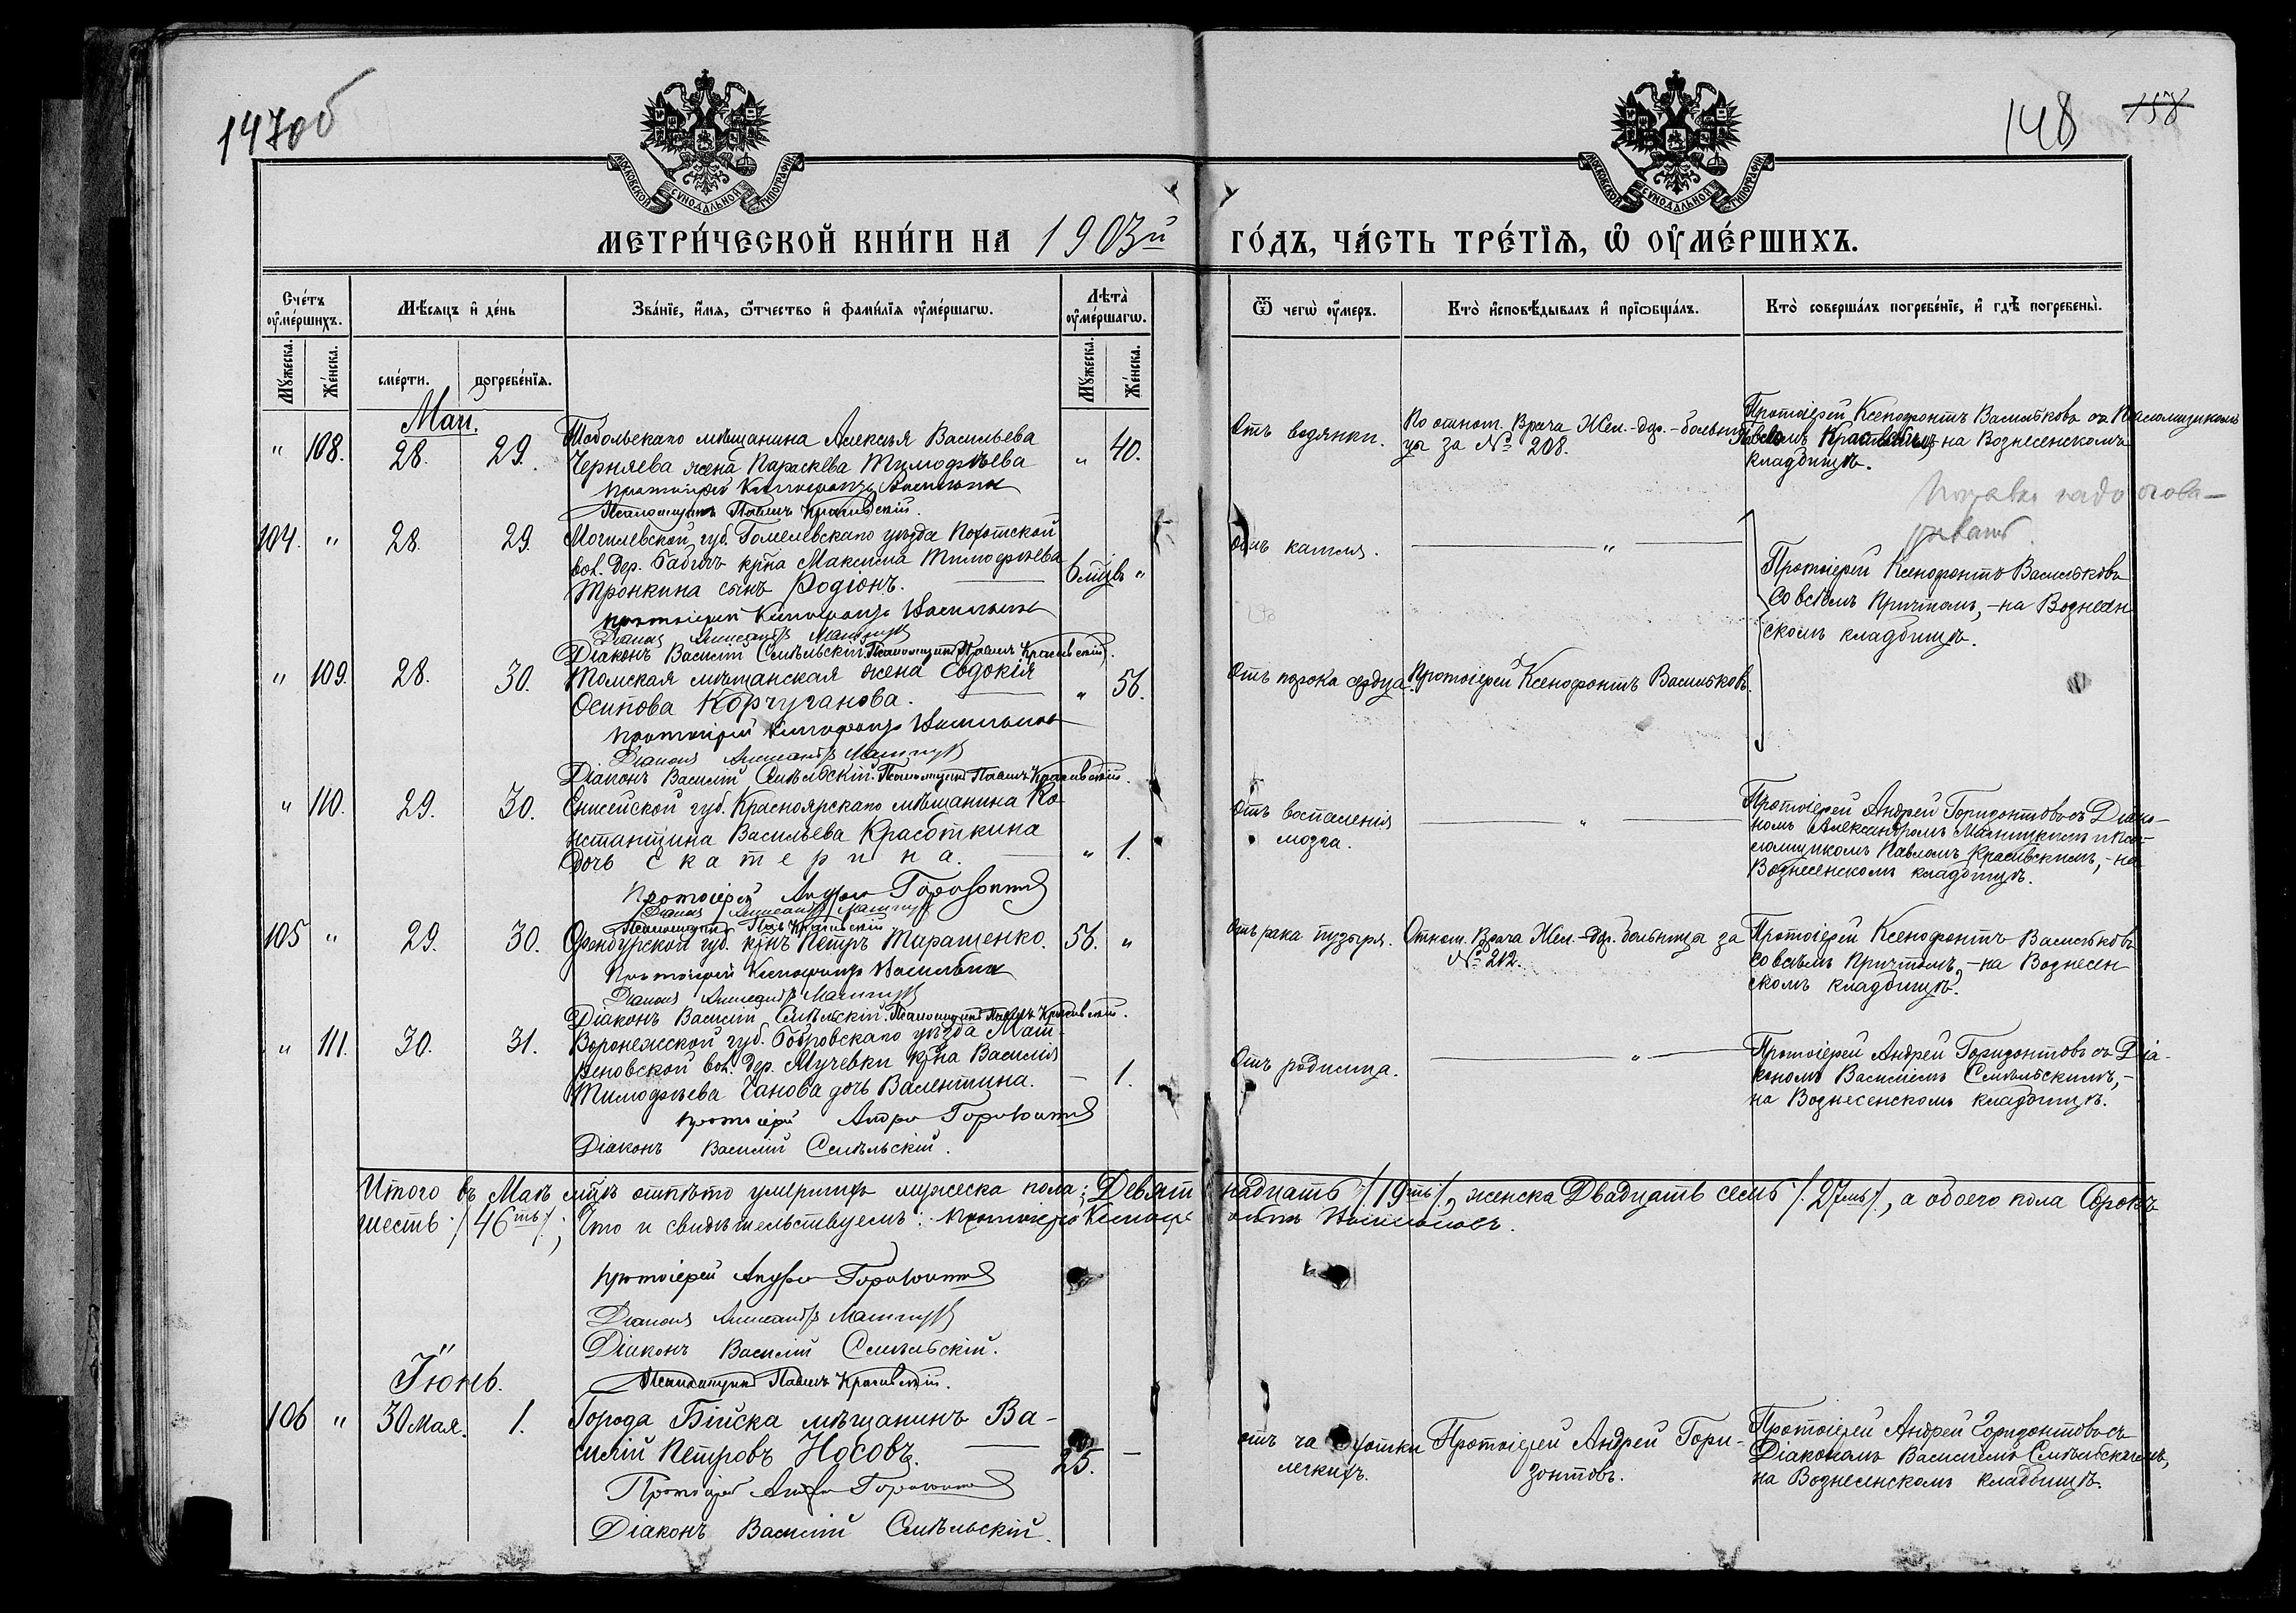 147об
148 158
МОСКОВСКОЙ СУНОДАЛЬНОЙ ТИПОГРАФІИ
МОСКОВСКОЙ СУНОДАЛЬНОЙ ТИПОГРАФІИ
МЕТРИ́ЧЕСКОЙ КНИ́ГИ НА 1903й ГО́ДЪ, ЧА́СТЬ ТРЕ́ТІѦ, Ѡ ОУМЕ́РШИХЪ.
Счетъ оумершихъ.
Мѣсяцъ и день
Званіе, имя, отчество и фамилія оумершагѡ.
Лѣта оумершагѡ.
Ѿ чегѡ оумеръ.
Кто исповѣдывалъ и пріѡбщалъ.
Кто совершалъ погребеніе, и гдѣ погребены.
Мужеска.
Женска.
смерти.
погребенія.
Мужеска.
Женска.
Маи.
" 108. 28. 29.
Тобольскаго мѣщанина Алексѣя Васильева
Черняева жена Параскева Тимофѣева
Протоіерей Ксенофонтъ Васильковъ
Псаломщикъ Павелъ Красивскій.
" 40.
Отъ водянки.
По отнош. Врача Жел.-дор.-больни
цы за № 208.
Протоіерей Ксенофонтъ Васильковъ съ Псаломщикомъ
Павломъ Красивскимъ, на Вознесенскомъ
кладбищѣ.
104. " 28. 29.
Могилевской губ. Гомелевскаго уѣзда
вол. дер. Бабичъ кр̃на Максима Тимофѣева
Тронкина сынъ Родіонъ.
Протоіерей Ксенофонтъ Васильковъ
Діаконъ Александръ
Діаконъ Василій Смѣльскій. Псаломщикъ Павелъ Красивскій.
6 мцвъ "
Отъ кашля.
"
надо огова-
ривать.
Протоіерей Ксенофонтъ Васильковъ
со всѣмъ Причтомъ, -на Вознесен
скомъ кладбищѣ.
" 109. 28. 30.
Томская мѣщанская жена Евдокія
Осипова Корчуганова.
Протоіерей Ксенофонтъ Васильковъ
Діаконъ Александръ
Діаконъ Василій Смѣльскій. Псаломщикъ Павелъ Красивскій.
" 56.
Отъ порока сердца.
Протоіерей Ксенофонтъ Васильковъ.
" 110. 29. 30.
Енисейской губ. Красноярскаго мѣщанина Ко-
нстантина Васильева Красоткина
дочь Екатерина.
Протоіерей Андрей Горизонтовъ
Діаконъ Александръ
Псаломщикъ Пав. Красивскій
" 1.
Отъ воспаленія
мозга.
"
Протоіерей Андрей Горизонтовъ съ Діако-
номъ Александромъ и Пса-
ломщикомъ Павломъ Красивскимъ, -на
Вознесенскомъ кладбищѣ.
105 " 29. 30.
Оренбургской губ. кр̃нъ Петръ Таращенко.
Протоіерей Ксенофонтъ Васильковъ
Діаконъ Александръ
Діаконъ Василій Смѣльскій. Псаломщикъ Павелъ Красивскій.
56. "
Отъ рака пузыря.
Отнош. Врача Жел.-дор. больницы за
№ 212.
Протоіерей Ксенофонтъ Васильковъ
со всѣмъ Причтомъ, -на Вознесен
скомъ кладбищѣ.
" 111. 30. 31.
Воронежской губ. Бобровскаго уѣзда
вол. дер. кр̃на Василія
Тимофѣева Чанова дочь Валентина.
Протоіерей Андрей Горизонтовъ
Діаконъ Василій Смѣльскій.
– 1.
Отъ родимца.
"
Протоіерей Андрей Горизонтовъ съ Діа-
кономъ Василіемъ Смѣльскимъ, -
на Вознесенскомъ кладбищѣ.
Итого въ Маѣ мцѣ отпѣто умершихъ мужеска пола: Девятнадцать /19ть/, женска Двадцать семь /27мь/, а обоего пола Сорокъ
шесть /46ть/; Что и свидѣтельствуемъ: Протоіерей Ксенофонтъ Васильковъ.
Протоіерей Андрей Горизонтовъ
Діаконъ Александръ
Діаконъ Василій Смѣльскій.
Псаломщикъ Павелъ Красивскій.
Іюнь.
106 " 30 мая. 1.
Города Бійска мѣщанинъ Ва-
силій Петровъ Носовъ.
Протоіерей Андрей Горизонтовъ
Діаконъ Василій Смѣльскій.
25. –
отъ чахотки
легкихъ.
Протоіерей Андрей Гори-
зонтовъ.
Протоіерей Андрей Горизонтовъ съ
Діакономъ Василіемъ Смѣльскимъ,
на Вознесенскомъ кладбищѣ.